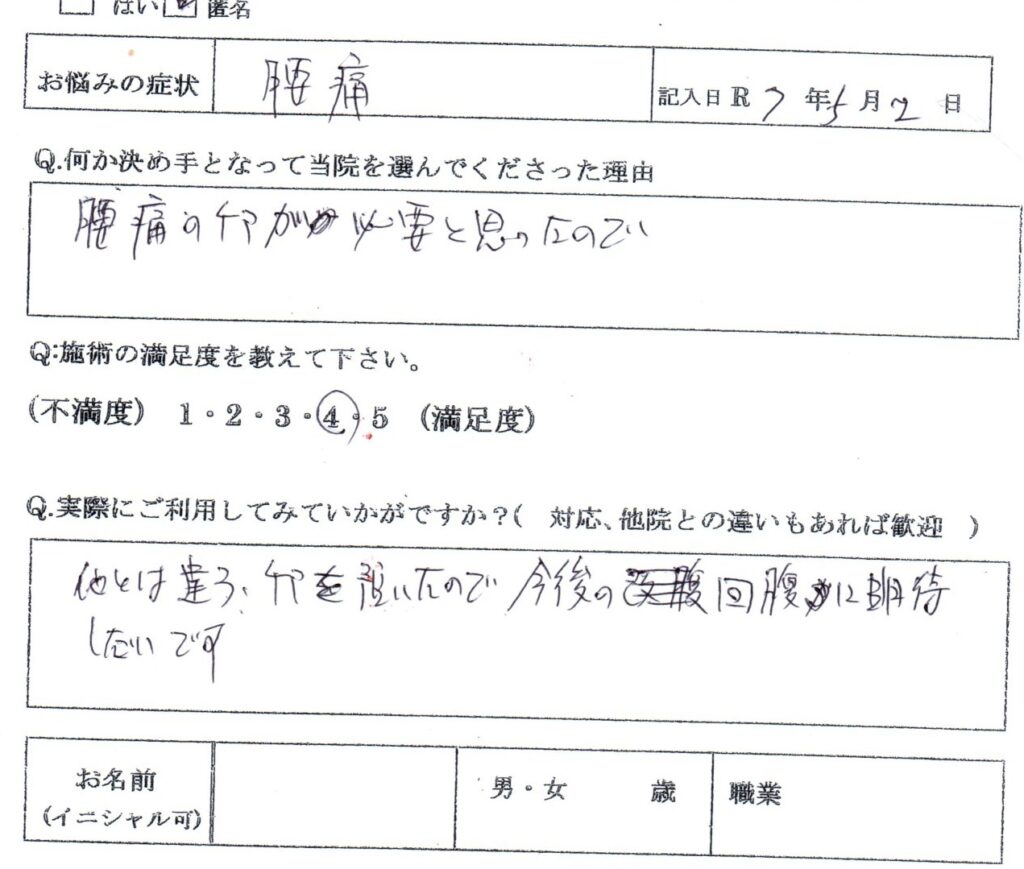 はい 匿名
お悩みの症状 腰痛 記入日 R 7 年 5 月 2 日
Q.何か決め手となって当院を選んでくださった理由
腰痛のケアが必要と思ったので
Q:施術の満足度を教えて下さい。
(不満度) 1・2・3・4・5 (満足度)
Q.実際にご利用してみていかがですか?( 対応、他院との違いもあれば歓迎 )
他とは違う、ケアを頂いたので 今後の 回腹に期待
したいです
お名前 男・女 歳 職業
(イニシャル可)